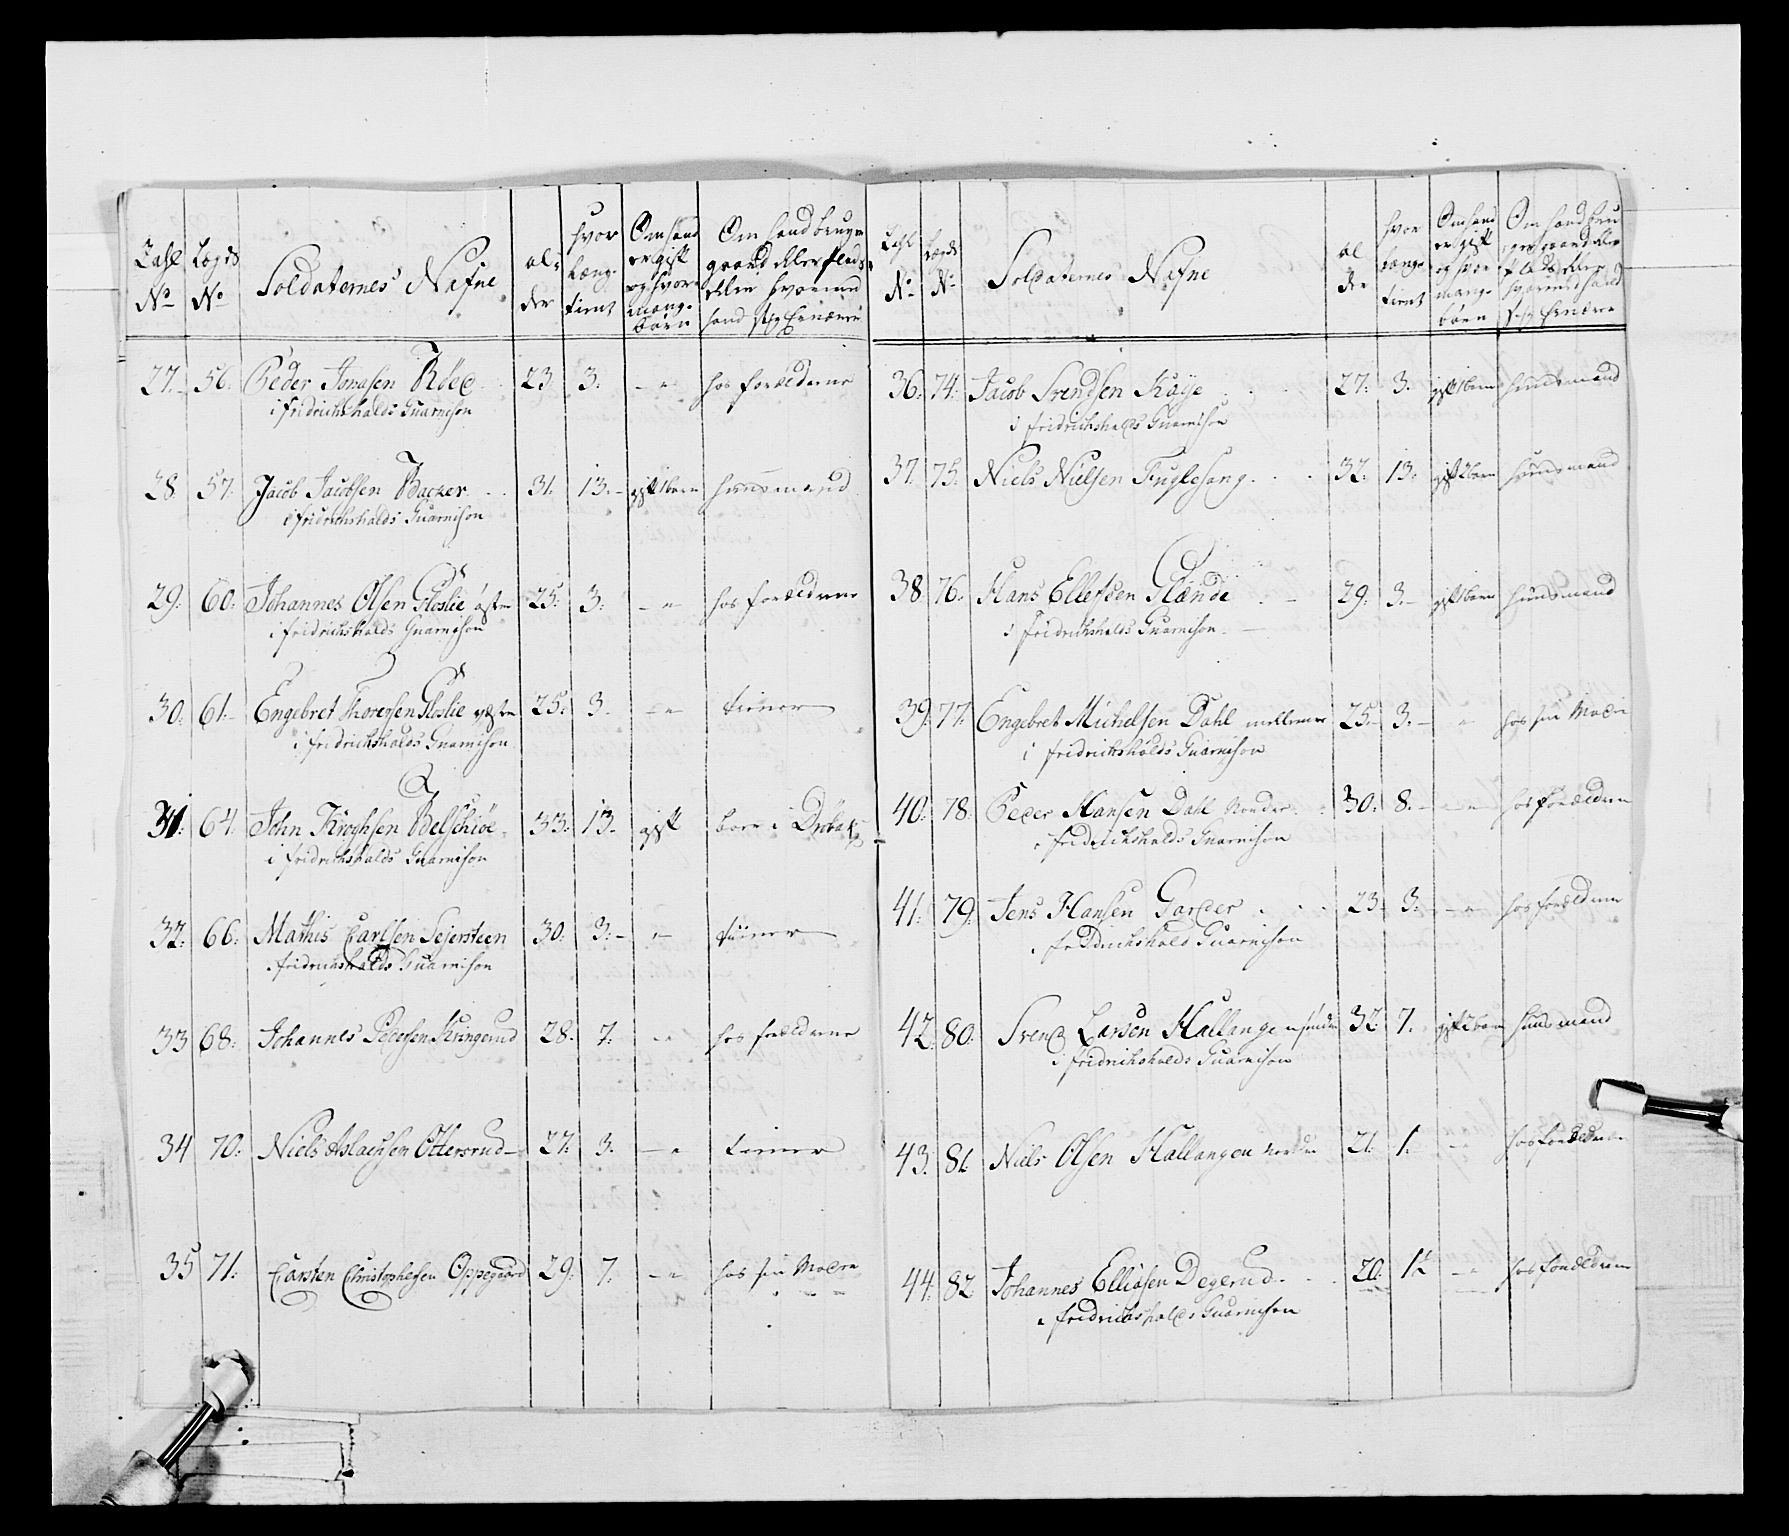 Tahl No | Lægds No | Soldaternes Nafne | al- der | hvor længe tient | Om hand er gift og hvor mange børn | Om hand bruger gaard eller plads eller hvormed hand sig Ernærer
27. 56. Peder Jonasen Röed 23. 3. - " hos forældrene
i fridrichshalds Guarnison
28 57. Jacob Jacobsen Backer 31. 13. gift 1 barn huusmand
i fridrichshalds Guarnison
29. 60. Johannes Olsen Gloslie østre 25. 3. - " hos forældrene
i fridrichshalds Guarnison
30. 61. Engebret Thoresen Gloslie vestre 25. 3. - " tiener
i fridrichshalds Guarnison
31. 64. John Kroghsen Belschiöe 33. 13. gift boer i Dröbak
i fridrichshalds Guarnison
32. 66. Mathis Carlsen Sejersteen 30. 3. - " tiener
i fridrichshalds Guarnison
33 68. Johannes Pedersen Kringerud 28. 7. - " hos forældrene
34 70. Niels Aslachsen Ottersrud 27. 3. - " tiener
35 71. Carsten Christophersen Oppegaard 29. 7. - " hos sin Moder
Tahl No | Lægds No | Soldaternes Nafne | al der | hvor længe tient | Om hand er gift og hvor mange børn | Om hand bruger gaard eller plads eller hvormed hand sig Ernærer
36. 74. Jacob Svendsen Kaye 27. 3. gift 1 barn huusmand
i fridrichshalds Guarnison
37. 75. Niels Nielsen Fuglesang 32. 13. gift 2 børn huusmand
38 76. Hans Ellefsen Glænde 29. 3. gift 1 barn huusmand
i fridrichshalds Guarnison
39. 77. Engebret Michelsen Dahl mellem 25. 3. - " hos sin Moder
i fridrichshalds Guarnison
40. 78. Peder Hansen Dahl Nordre 30. 8. - " hos forældrene
i fridrichshalds Guarnison
41. 79. Jens Hansen Garder 23. 3. - " hos forældrene
i fridrichshald Guarnison
42. 80. Svend Larsen Hallangen søndre 32. 7. gift 2 børn huusmand
i fridrichshalds Guarnison
43. 81. Niels Olsen Hallangen nordre 21. 1. - " hos forældrene
44. 82. Johannes Elliasen Degerud 20. 1½ - " hos forældrene
i fridrichshalds Guarnison